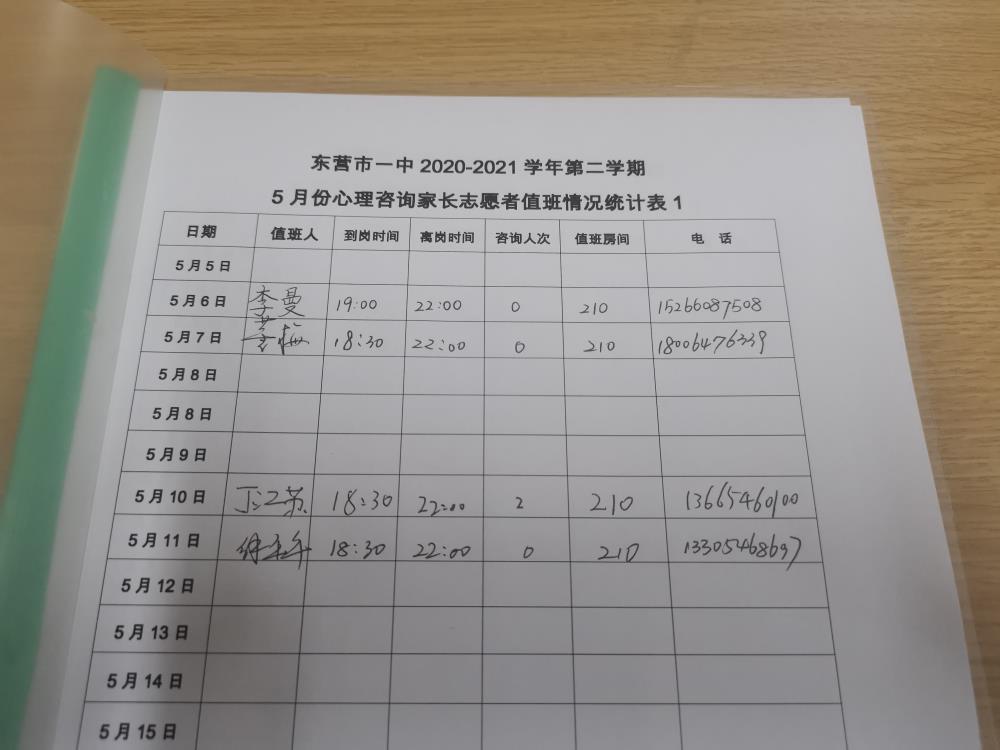 东营市一中 2020-2021 学年第二学期
5 月份心理咨询家长志愿者值班情况统计表 1
日期 值班人 到岗时间 离岗时间 咨询人次 值班房间 电 话
5 月 5 日
5 月 6 日 李曼 19:00 22:00 0 210 15266087508
5 月 7 日 18:30 22:00 0 210 18006476339
5 月 8 日
5 月 8 日
5 月 9 日
5 月 10 日 丁江苏 18:30 22:00 2 210 13665460100
5 月 11 日 18:30 22:00 0 210 13305468697
5 月 12 日
5 月 13 日
5 月 14 日
5 月 15 日